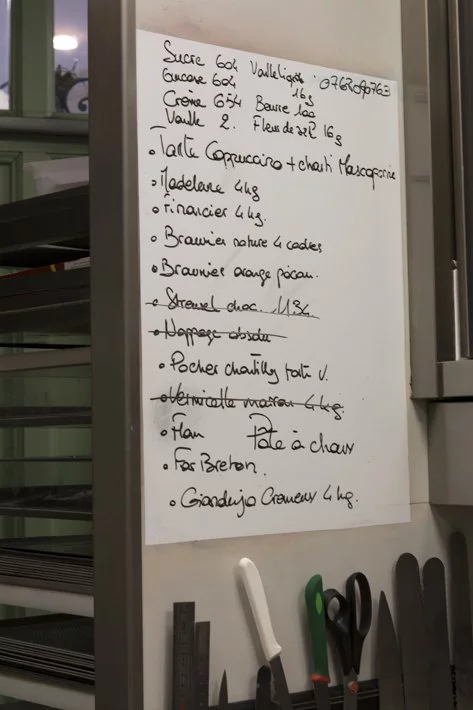 Sucre 604 Vanille liqide 0763090763
Glucose 604 16g
Crème 654 Beurre 100
Vanille 2. Fleur de sel 16g
• Tarte Cappuccino + chanti Mascarpone
• Madelaine 4kg
• Financier 4kg.
• Brownies nature 4 cadres
• Brownies orange pécan.
• Streusel choc.
• Nappage absolu
• Pocher chantilly tarte V.
• Vermicelle maison 4 kg.
• Flan Pâte à choux
• Far Breton.
• Gianduja Cremeux 4 kg.